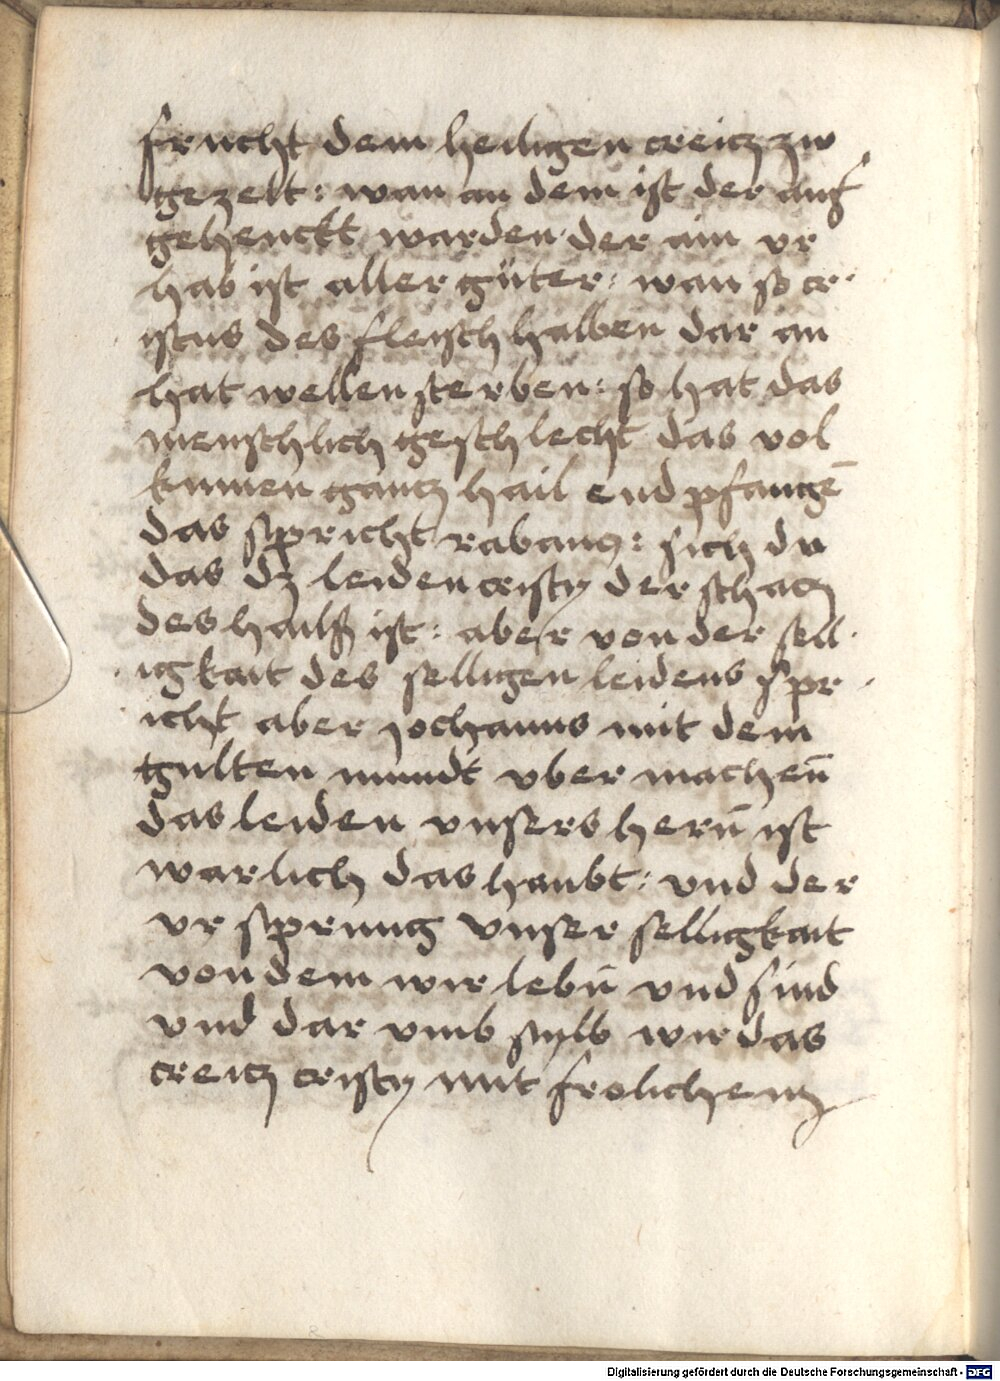 frucht dem heiligen creitz zw
gezelt : wan an dem ist der auf
gehenckt warden der ain vr
hab ist aller güter : wan so cr
istus des fleisch halben dar an
hat wellen sterben : so hat das
menschlich geschlecht das vol
kumen gantz hail end pfangē
das spricht rabanꝰ : sich du
das dz leiden cristy der schatz
des hailß ist : aber von der sell
igkait des selligen leidens spr
icht aber johanns mit dem
gulten mundt vber machen̄
das leiden vnsers hern̄ ist
warlich das haubt : vnd der
vr sprung vnser selligkait
von dem wir lebn̄ vnd sind
vnd dar vmb wir das
creitz cristy mit frolichem
Digitalisierung gefördert durch die Deutsche Forschungsgemeinschaft - DFG